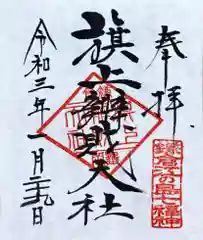 奉拝
鎌倉江の島七福神
旗上辨財天社
令和三年一月二九日